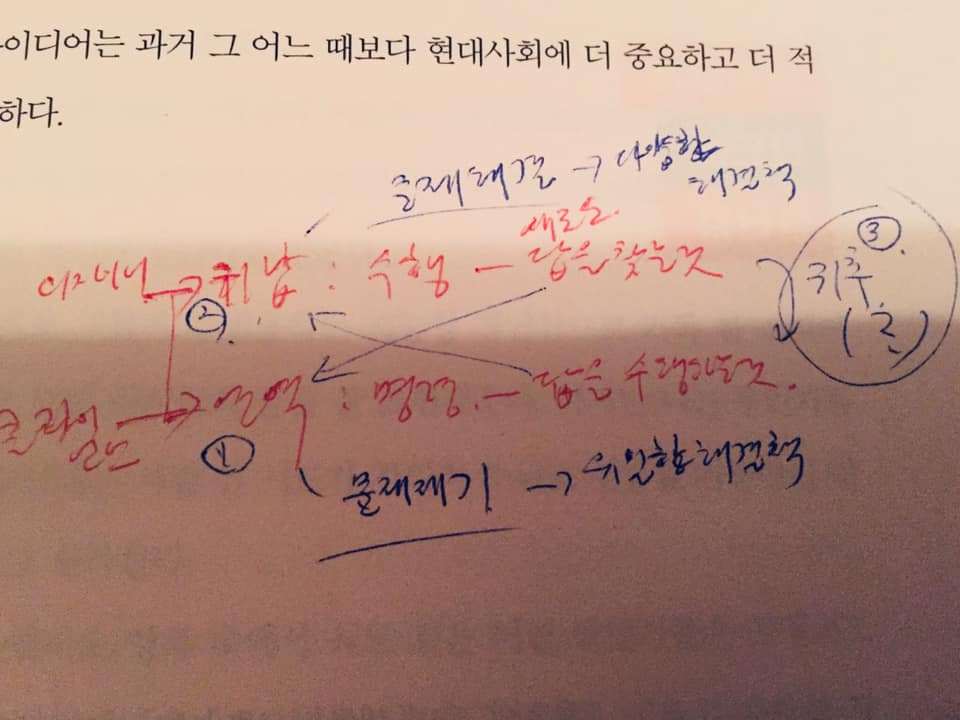 아이디어는 과거 그 어느 때보다 현대사회에 더 중요하고 더 적
하다.
문제해결 → 다양한
해결책
새로운
→ 귀납 : 수행 – 답을 찾는것
②
③
귀추
→ 연역 : 명령 – 답을 수행하는것.
①
문제제기 → 유일한 해결책